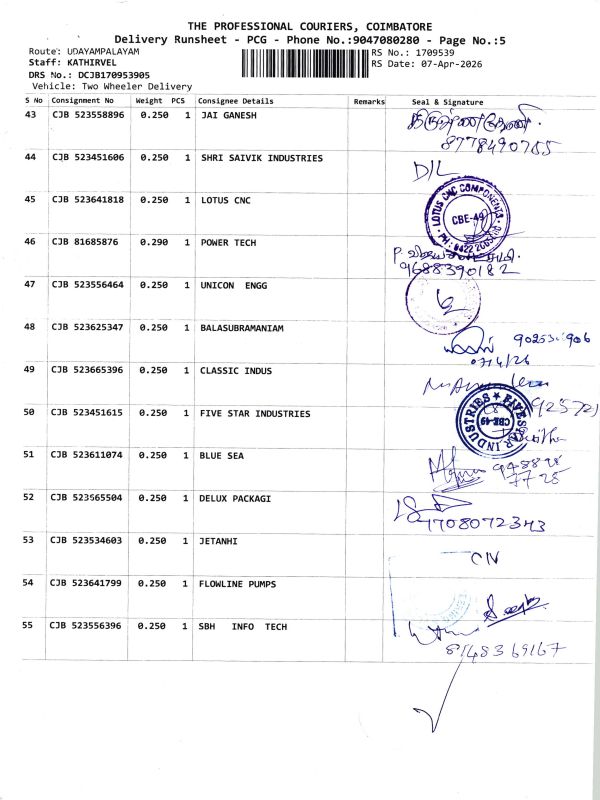 THE PROFESSIONAL COURIERS, COIMBATORE
Delivery Runsheet - PCG - Phone No.:9047080280 - Page No.:5
Route: UDAYAMPALAYAM RS No.: 1709539
Staff: KATHIRVEL RS Date: 07-Apr-2026
DRS No.: DCJB170953905
Vehicle: Two Wheeler Delivery
S No Consignment No Weight PCS Consignee Details Remarks Seal & Signature
43 CJB 523558896 0.250 1 JAI GANESH
8778490785
44 CJB 523451606 0.250 1 SHRI SAIVIK INDUSTRIES D/L
45 CJB 523641818 0.250 1 LOTUS CNC LOTUS CNC COMPONENTS CBE-49
46 CJB 81685876 0.290 1 POWER TECH
9688390182
47 CJB 523556464 0.250 1 UNICON ENGG
48 CJB 523625347 0.250 1 BALASUBRAMANIAM
07/4/26
49 CJB 523665396 0.250 1 CLASSIC INDUS
50 CJB 523451615 0.250 1 FIVE STAR INDUSTRIES FIVE STAR INDUSTRIES CBE-49
51 CJB 523611074 0.250 1 BLUE SEA
52 CJB 523565504 0.250 1 DELUX PACKAGI
53 CJB 523534603 0.250 1 JETANHI
54 CJB 523641799 0.250 1 FLOWLINE PUMPS
55 CJB 523556396 0.250 1 SBH INFO TECH
8148369167